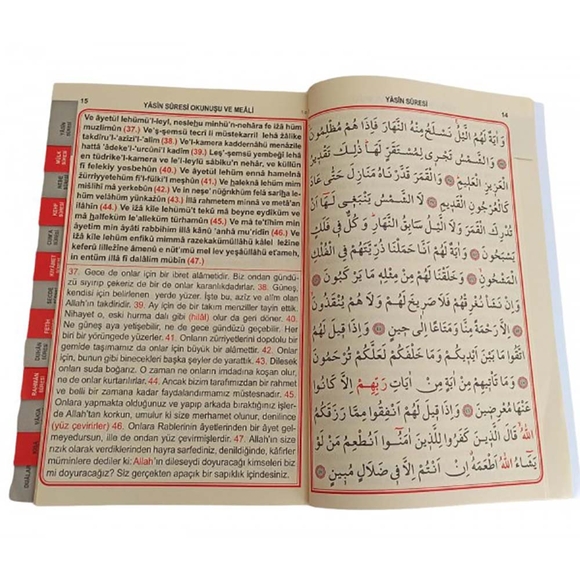 15 YÂSÎN SÛRESİ OKUNUŞU VE MEÂLİ
Ve âyetül lehümü'l-leyl, neslehu minhü'n-nehâra fe izâ hüm
muzlimûn (37.) Ve'ş-şemsü tecrî li müstekarril lehâ zâlike
takdîru'l-'azîzi'l-'alîm (38.) Ve'l-kamera kaddernâhü menâzile
hattâ 'âdeke'l-'urcûni'l kadîm (39.) Leş'-şemsü yembeğî lehâ
en tüdrike'l-kamera ve le'l-leylü sâbiku'n nehâr, ve küllün
fî felekiy yesbehûn (40.) Ve âyetül lehüm ennâ hamelnâ
zürriyyetehüm fi'l-fülki'l meşhûn (41.) Ve haleknâ lehüm mim
mislihî mâ yerkebûn (42.) Ve in neşe' nüğrıkhüm felâ sarîha le-
hüm velâhüm yünkazûn (43.) İllâ rahmetem minnâ ve metâ'an
ilâhîn (44.) Ve izâ kîle lehümü't tekû mâ beyne eydîküm ve
mâ halfeküm le'alleküm türhamûn (45.) Ve mâ te'tîhim min
âyetim min âyâti rabbihim illâ kânû 'anhâ mu'ridîn (46.) Ve
izâ kîle lehüm enfikû mimmâ razekakümüllâhü kâlel lezîne
keferû lillezîne âmenû e nüt'ımü mel lev yeşâüllâhü et'ameh,
in entüm illâ fî dalâlim mübîn (47.)
37. Gece de onlar için bir ibret alâmetidir. Biz ondan gündü-
zü sıyırıp çekeriz de bir de onlar karanlıkdadırlar. 38. Güneş,
kendisi için belirlenen yerde yüzer. İşte bu, azîz ve alîm olan
Allah'ın takdiridir. 39. Ay için de bir takım menziller tayin ettik.
Nihayet o, eski hurma dalı gibi (hilâl) olur da geri döner. 40.
Ne güneş aya yetişebilir, ne de gece gündüzü geçebilir. Her
biri bir yörüngede yüzerler. 41. Onların zürriyetlerini dopdolu bir
gemide taşımamız da onlar için büyük bir alâmettir. 42. Onlar
için, bunun gibi binecekleri başka şeyler de yarattık. 43. Dilesek
onları suda boğarız. O zaman ne onların imdadına koşan olur,
ne de onlar kurtarılırlar. 44. Ancak bizim tarafımızdan bir rahmet
ve belli bir zamana kadar faydalandırmamız müstesnadır. 45.
Onlara yapmakta olduğunuz ve yapıp arkada bıraktığınız işler-
de Allah'tan korkun, umulur ki size merhamet olunur, denilince
(yüz çevirirler) 46. Onlara Rablerinin âyetlerinden bir âyet gel-
meyedursun, ille de ondan yüz çevirmişlerdir. 47. Allah'ın size
rızık olarak verdiklerinden hayra sarfediniz, denildiğinde, kâfirler
müminlere dediler ki: Allah'ın dileseydi doyuracağı kimseleri biz
mi doyuracağız? Siz gerçekten apaçık bir sapıklık içindesiniz.
YÂSÎN SÛRESİ 14
وَاٰيَةٌ لَهُمُ الَّيْلُ نَسْلَخُ مِنْهُ النَّهَارَ فَاِذَا هُمْ مُظْلِمُونَ
وَالشَّمْسُ تَجْرٖى لِمُسْتَقَرٍّ لَهَا ذٰلِكَ تَقْدٖيرُ
الْعَزٖيزِ الْعَلٖيمِ وَالْقَمَرَ قَدَّرْنَاهُ مَنَازِلَ حَتّٰى عَادَ
كَالْعُرْجُونِ الْقَدٖيمِ لَا الشَّمْسُ يَنْبَغٖى لَهَا اَنْ
تُدْرِكَ الْقَمَرَ وَلَا الَّيْلُ سَابِقُ النَّهَارِ وَكُلٌّ فٖى فَلَكٍ
يَسْبَحُونَ وَاٰيَةٌ لَهُمْ اَنَّا حَمَلْنَا ذُرِّيَّتَهُمْ فِى الْفُلْكِ
الْمَشْحُونِ وَخَلَقْنَا لَهُمْ مِنْ مِثْلِهٖ مَا يَرْكَبُونَ
وَاِنْ نَشَأْ نُغْرِقْهُمْ فَلَا صَرٖيخَ لَهُمْ وَلَا هُمْ يُنْقَذُونَ
اِلَّا رَحْمَةً مِنَّا وَمَتَاعًا اِلٰى حٖينٍ وَاِذَا قٖيلَ لَهُمُ
اتَّقُوا مَا بَيْنَ اَيْدٖيكُمْ وَمَا خَلْفَكُمْ لَعَلَّكُمْ تُرْحَمُونَ
وَمَا تَاْتٖيهِمْ مِنْ اٰيَةٍ مِنْ اٰيَاتِ رَبِّهِمْ اِلَّا كَانُوا
عَنْهَا مُعْرِضٖينَ وَاِذَا قٖيلَ لَهُمْ اَنْفِقُوا مِمَّا رَزَقَكُمُ
اللّٰهُ قَالَ الَّذٖينَ كَفَرُوا لِلَّذٖينَ اٰمَنُوا اَنُطْعِمُ مَنْ لَوْ
يَشَاءُ اللّٰهُ اَطْعَمَهُ اِنْ اَنْتُمْ اِلَّا فٖى ضَلَالٍ مُبٖينٍ
YÂSÎN SÛRESİ
MÜLK SÛRESİ
NEBE SÛRESİ
KEHF SÛRESİ
CUM'A SÛRESİ
KIYÂMET SÛRESİ
SECDE
FETH
DUHÂN SÛRESİ
RAHMÂN SÛRESİ
VÂKIA
DUÂLAR